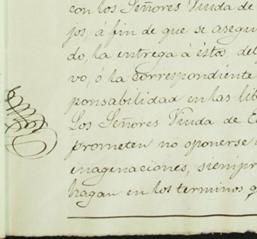 con los Señores Viuda de
jos, á fin de que se asegu
do, la entrega á éstos, del
vo, ó la correspondiente
ponsabilidad en las lib
Los Señores Viuda de
prometen no oponerse
enagenaciones, siempr
hagan en los terminos q